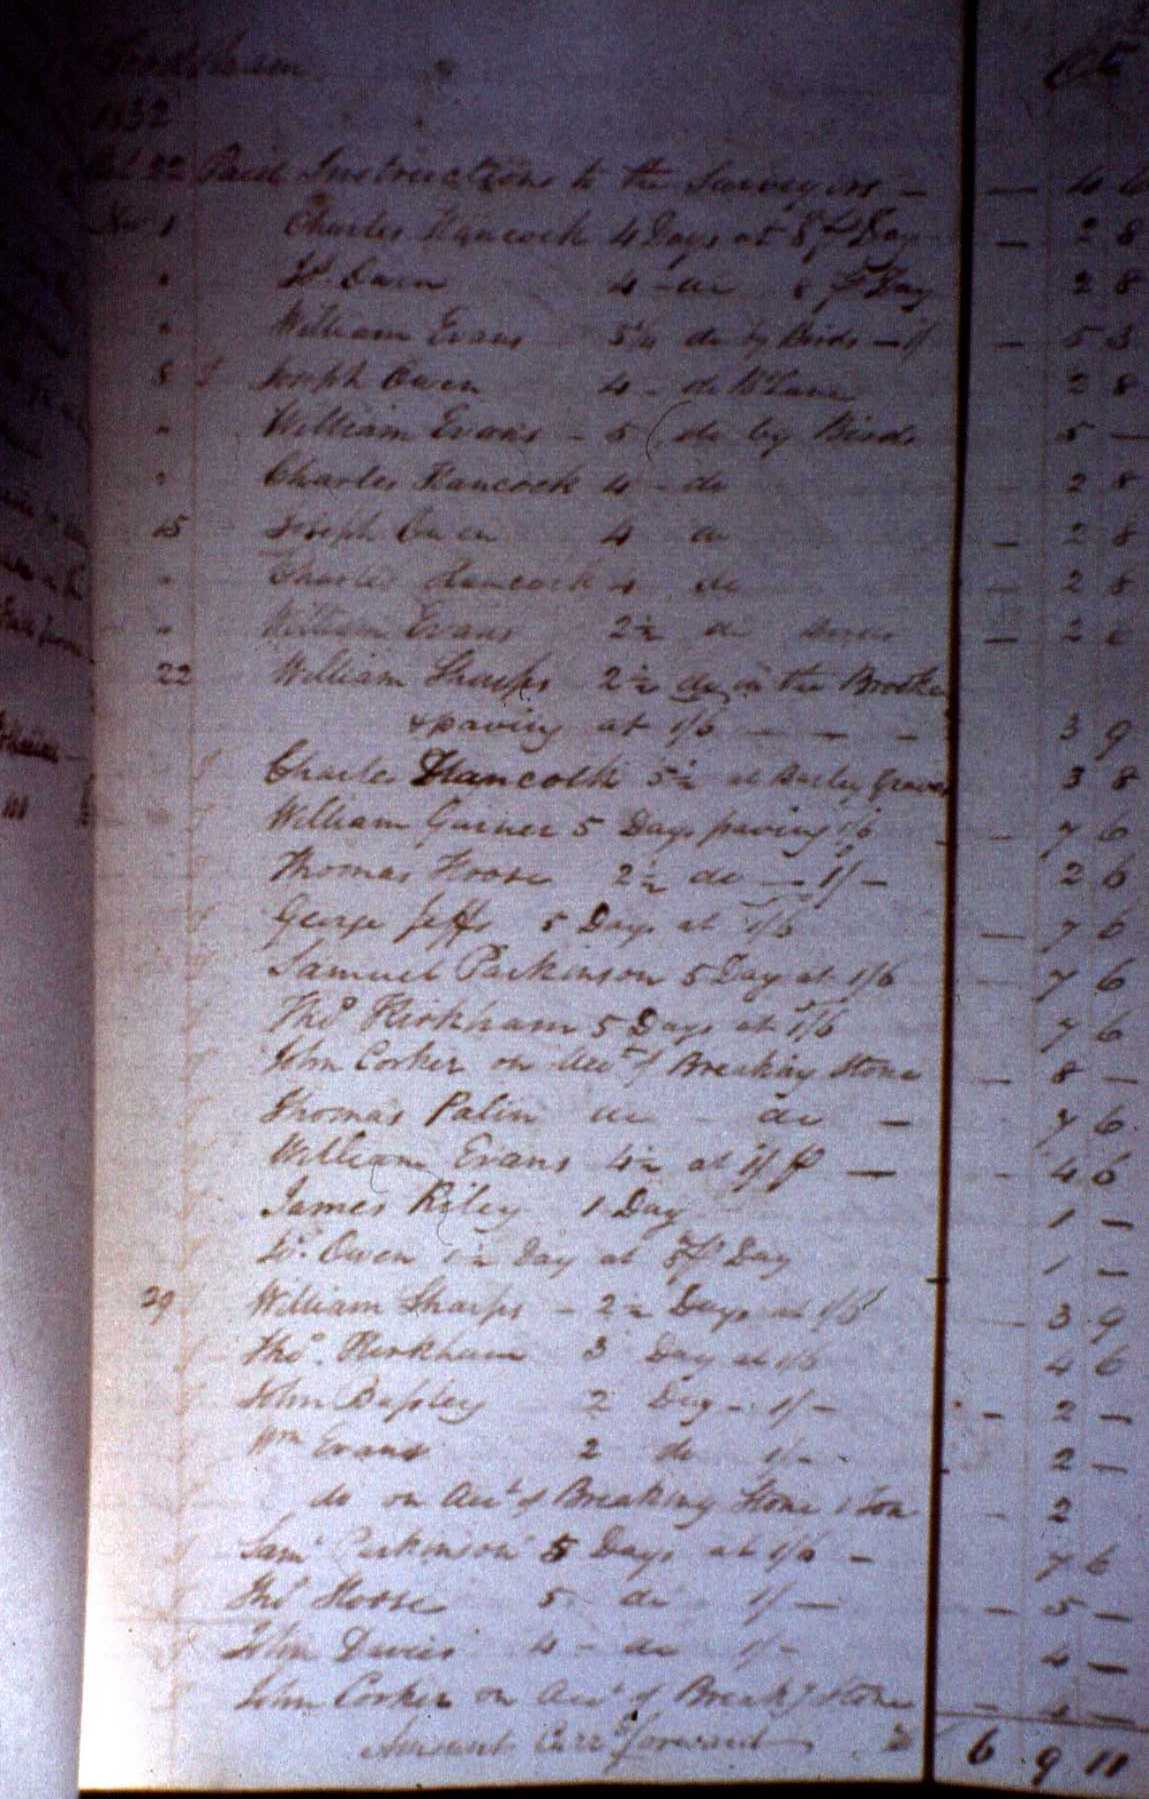 1832 Cr
22 Paid Instructions to the Surveyors — — 4 6
Nov 1 Charles Hancock 4 Days at 8 pr Day — 2 8
" 4 - do 8 pr Day 2 8
" William Evans 5¼ do by Birds — 1/ — 5 3
8 Joseph Owen 4 - do 2 8
" William Evans - 5 do by Birds 5 —
" Charles Hancock 4 - do 2 8
15 Joseph Owen 4 do — 2 8
" Charles Hancock 4 do — 2 8
" William Evans 2½ do — 2
22 William Sharps 2½ do in the Brooke
& paving at 1/6 — — - 3 9
Charles Hancock 5½ at 3 8
William Garner 5 Days paving 1/6 - 7 6
Thomas Hoose 2½ do — 1/- 2 6
George Jeffs 5 Days at 1/6 — 7 6
Samuel Parkinson 5 Day at 1/6 — 7 6
Thos Kirkham 5 Days at 1/6 7 6
John Corker on acct of Breaking Stone — 8 —
Thomas Palin do - do — 7 6
William Evans 4½ at 1/ pr — - 4 6
James Riley 1 Day 1 —
Jos. Owen 1½ Day at 8 pr Day 1 —
29 William Sharps - 2½ Days at 1/6 — 3 9
Thos. Kirkham 3 Day at 1/6 4 6
John 2 Day - 1/- - 2 —
Wm Evans 2 do 1/- 2 —
do on acct of Breaking Stone 1 ton - 2
Saml Parkinson 5 Days at 1/6 — 7 6
Thos Hoose 5 do 1/ — — 5 —
John Davies 4 - do 1/- 4 —
John Corker on acct of Breakg Stone - —
Amount Carrd forward £ 6 9 11